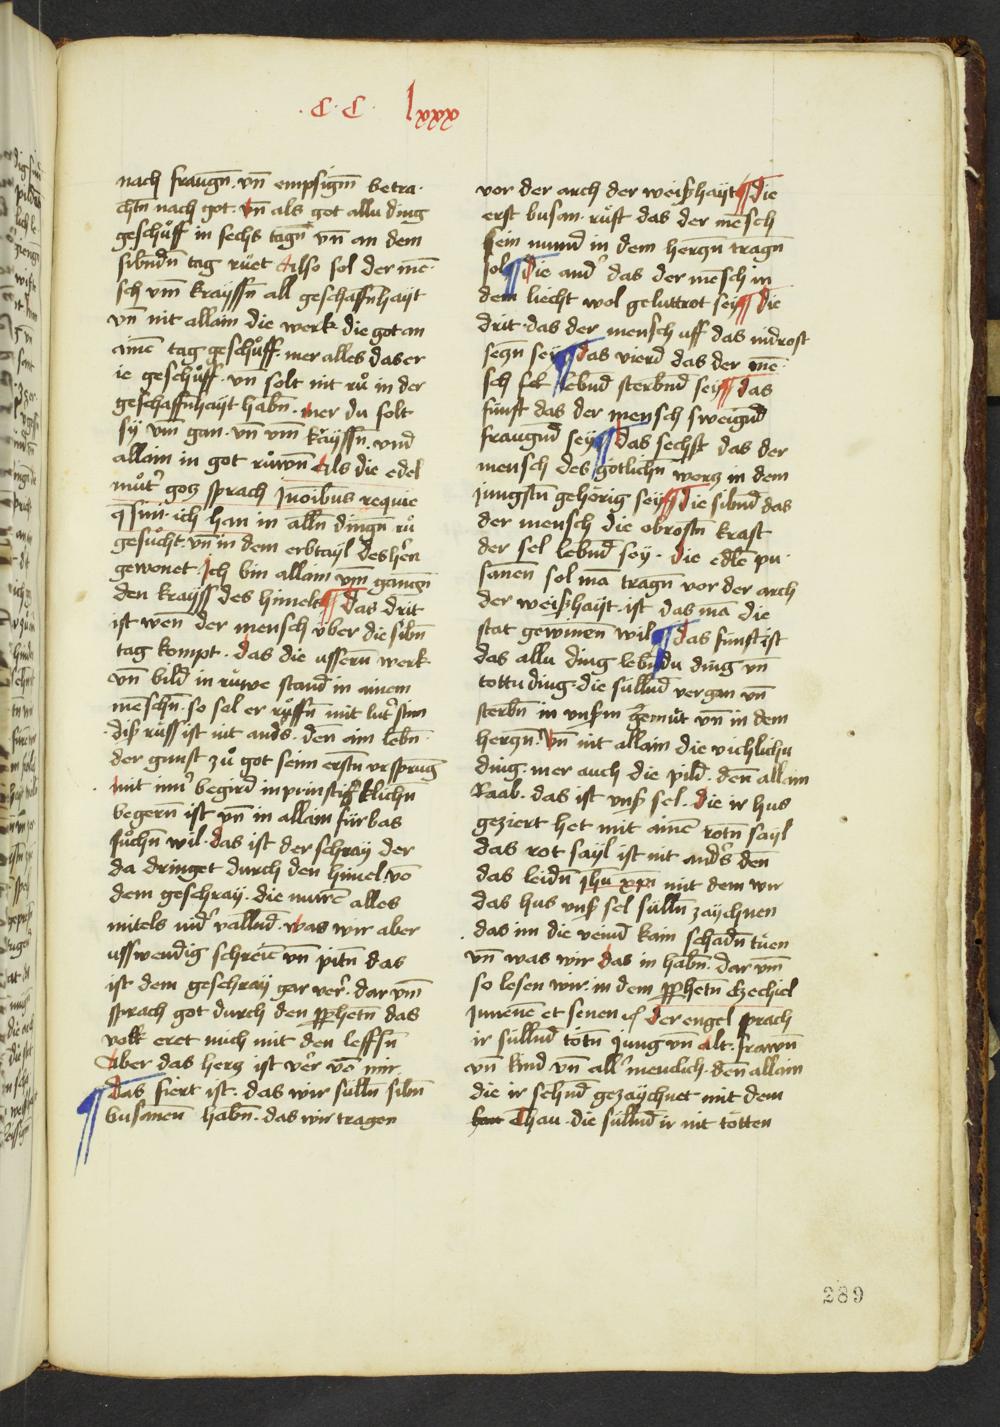 ·C·C· lxxx
nach fraugn̄. vn̄ empsigm̄ betra·
chtn̄ nach got. vn̄ als got allu ding
geschůff in sechs tagn̄ vn̄ an dem
sibndn̄ tag růet Also sol der mē·
sch vm̄ krayssn̄ all geschaffnhayt
vn̄ nit allain die werk die got an
ainē tag geschůff. mer alles das er
ie geschůff. vn̄ solt nit rů in der
geschaffnhayt habn̄. mer du solt
sy vm̄ gan. vn̄ vm̄ krayssn̄. vnd
allain in got růwn̄ Als die edel
můt' gotz sprach Inoibus requie
q̄siui. ich han in alln̄ dingn̄ rů
gesůcht. vn̄ in dem erbtayl des h'en
gewonet. Ich bin allain vm̄ gangn̄
den krayss des himels ¶ das drit
ist wen̄ der mensch v̈ber die sibn̄
tag kompt. das die ussern̄ werk
vn̄ bild in růwe stand in ainem
menschn̄. so sol er rüffn̄ mit lut' stim
diß rüff ist nit and's. den̄ ain lebn̄
der gunst zů got seim erstn̄ vrsprung
mit inn' begird inprinstigklichn̄
begern̄ ist vn̄ in allain fürbas
sůchn̄ wil. das ist der schray der
da dringet durch den himel. vō
dem geschray. die nurē alles
mitels nid' vallnd̄. was wir aber
usswendig schreiē vn̄ pitn̄ das
ist dem geschray gar ver'. dar vm̄
sprach got durch den pphetn̄ das
volk eret mich mit den leffsn̄
Aber das herz ist ver' vō mir.
¶ das fiert ist. das wir sülln̄ sibn̄
busanen̄ habn̄. das wir tragen
vor der arch der weißhayt ¶ die
erst busan. rüft das der mēsch
sein mund in dem herczn̄ tragn̄
sol ¶ Die and' das der mēsch in
dem liecht wol geluttrot sey ¶ die
drit. das der mensch uff das nidrost
segn̄ sey ¶ das vierd das der mē·
sch sel lebnd̄ sterbnd̄ sey ¶ das
fünft das der mensch sweignd̄
fraugnd̄ sey ¶ das sechst das der
mensch des götlichn̄ worcz in dem
jungstn̄ gehörig sey ¶ die sibnd̄ das
der mensch die obrostn̄ kraft
der sel lebnd̄ sey. die edlē pu·
sanen̄ sol mā tragn̄ vor der arch
der weißhayt. ist das mā die
stat gewinen̄ wil ¶ das fünft ist
das allu ding lebndu ding vn̄
tottu ding. die süllnd̄ vergan vn̄
sterbn̄ in vnßm̄ gemüt vn̄ in dem
herczn̄. vn̄ nit allain die vichlichu
ding. mer auch die pild̄. den̄ allain
Raab. das ist vnß sel. die ir hus
geziert het mit ainē rotn̄ sayl
das rot sayl ist nit and's den̄
das leidn̄ jhu xpi mit dem wir
das hus vnß sel sülln̄ zaychnen
das im die veind̄ kain schadn̄ tuen
vn̄ was wir das in habn̄. dar vm̄
so lesen wir. in dem pphetn̄ Ezechiel
Iuuenē et senen der engel sprach
ir süllnd̄ totn̄ jung vn̄ alt. frawn̄
vn̄ kind vn̄ all' menclich. den̄ allain
die ir sehnd̄ gezaychnet mit dem
Thau. die süllnd̄ ir nit totten
289